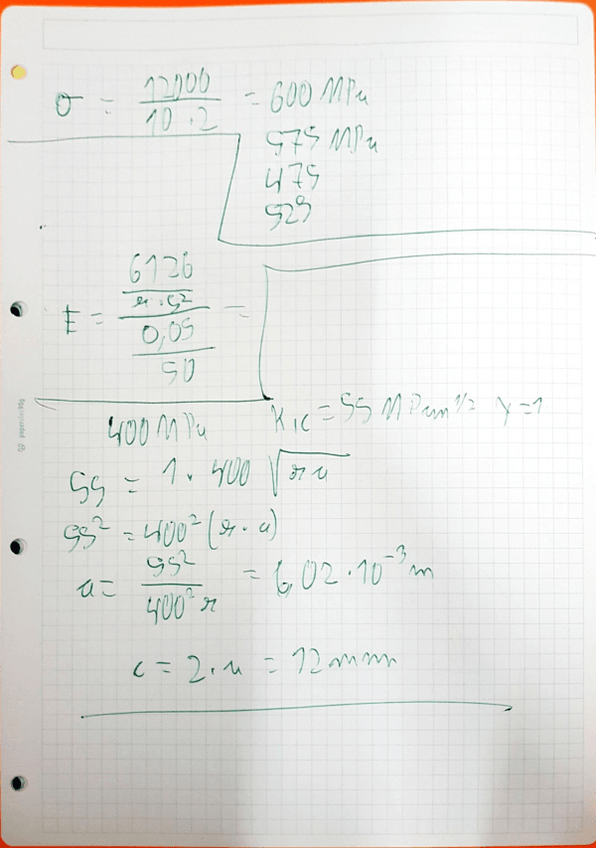 σ = 12000 / 10 · 2 = 600 MPa
575 MPa
475
525
E = (6126 / π · 5²) / (0,05 / 50) =
400 MPa K₁c = 55 MPam^1/2 Y = 1
55 = 1 · 400 √πa
55² = 400² (π · a)
a = 55² / 400² π = 6,02 · 10⁻³ m
c = 2 · a = 12 mm